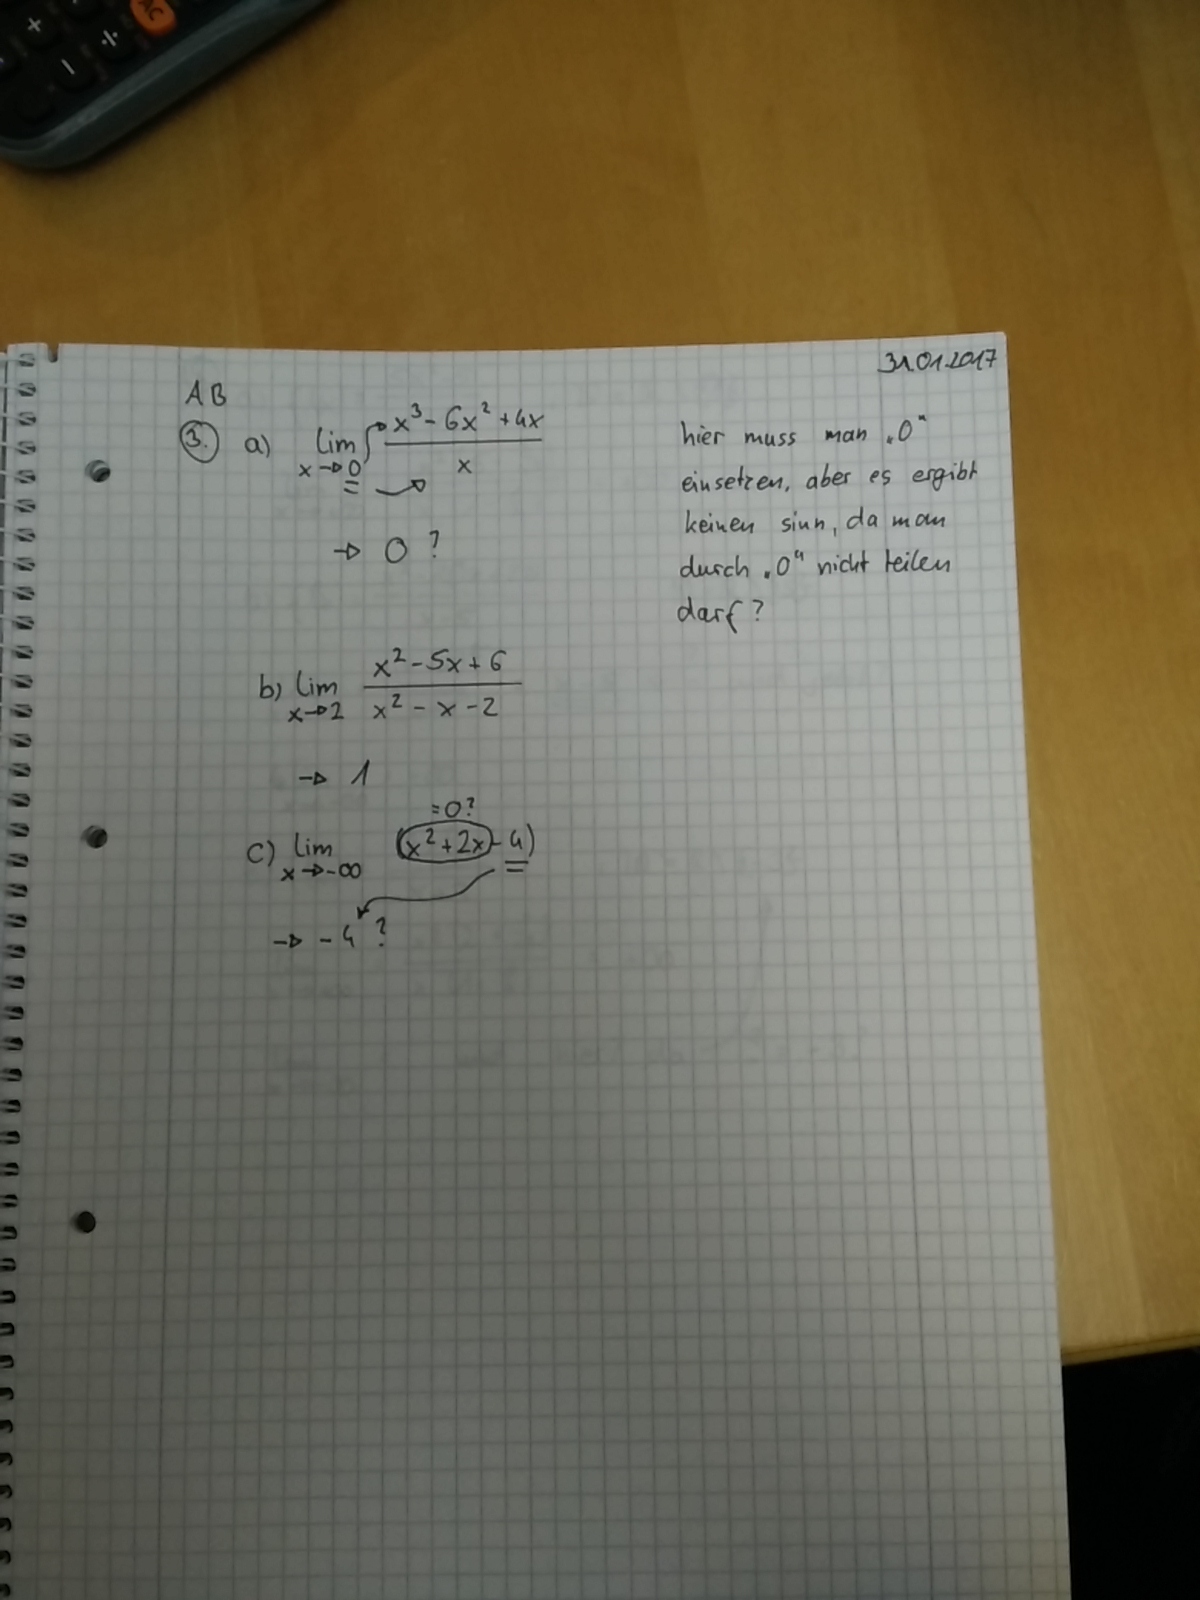 AC
+
÷
31.01.2017
AB
3. a) lim x→0 (x³ - 6x² + 4x) / x
→ 0 ?
hier muss man „0“
einsetzen, aber es ergibt
keinen sinn, da man
durch „0“ nicht teilen
darf?
b) lim x→2 (x² - 5x + 6) / (x² - x - 2)
→ 1
=0?
c) lim x→-∞ (x² + 2x - 4)
→ -4 ?